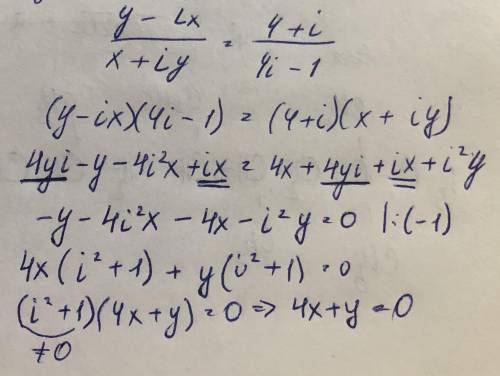 (y - ix)/(x + iy) = (4 + i)/(4i - 1)
(y-ix)(4i-1) = (4+i)(x + iy)
4yi - y - 4i²x + ix = 4x + 4yi + ix + i²y
-y - 4i²x - 4x - i²y = 0 |:(-1)
4x(i²+1) + y(i²+1) = 0
(i²+1)(4x+y) = 0 => 4x+y = 0
≠0